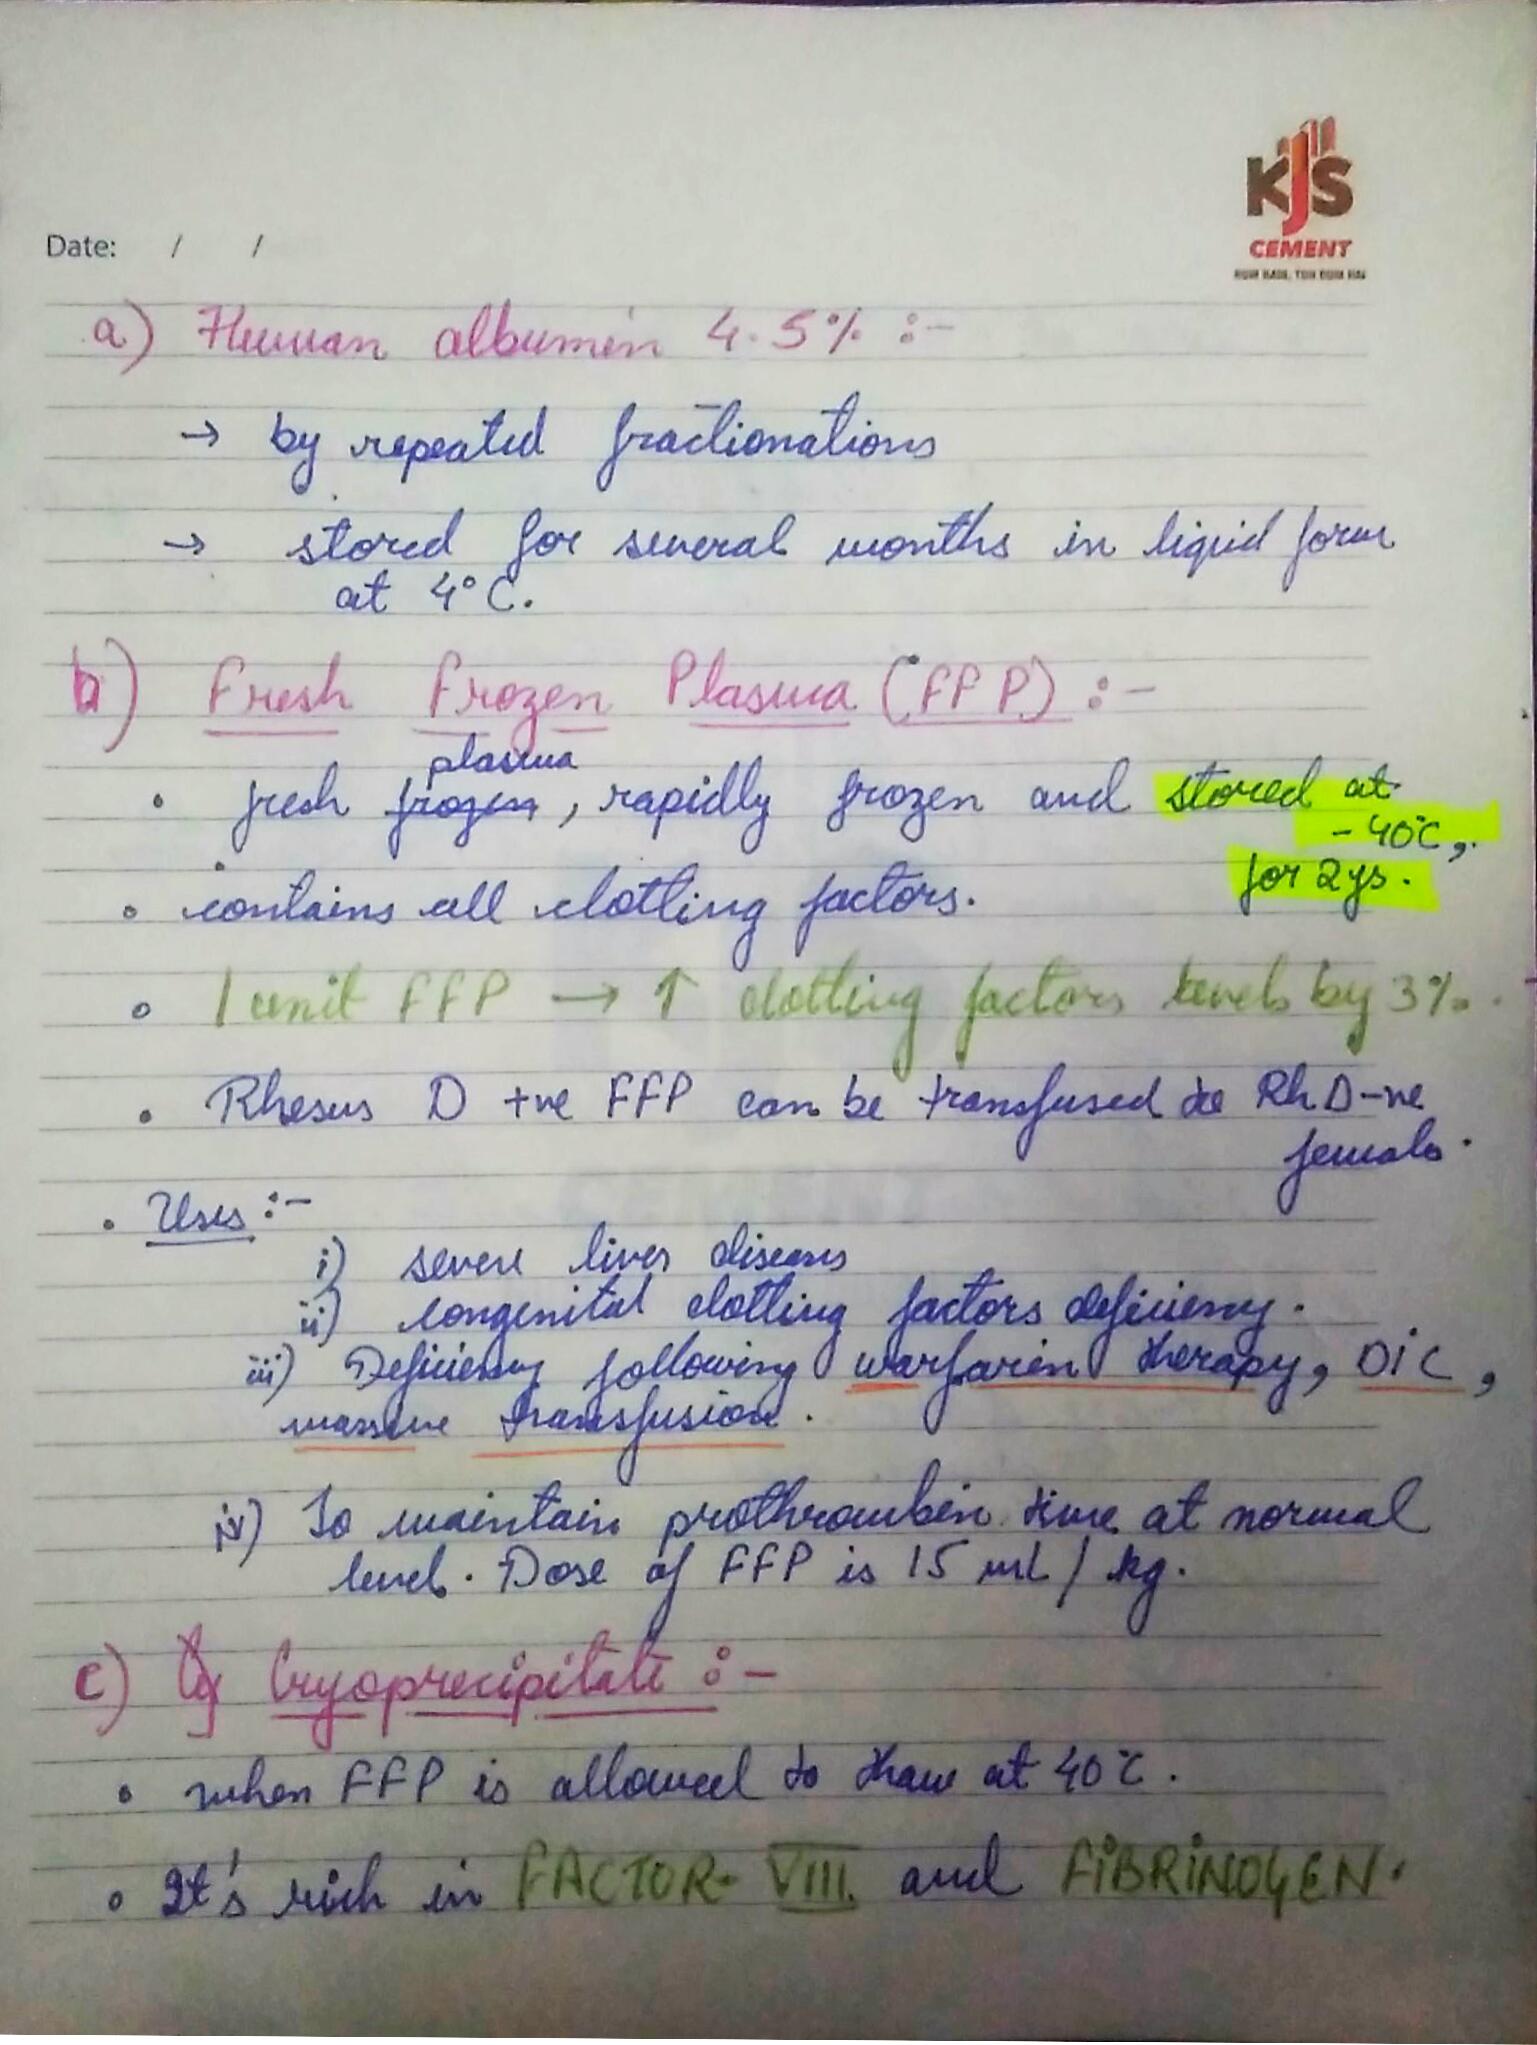 KJS
CEMENT
Date: / /
a) Human albumin 4.5% :-
→ by repeated fractionations
→ stored for several months in liquid form
at 4°C.
b) Fresh Frozen Plasma (FFP) :-
plasma
• fresh frozen, rapidly frozen and stored at
- 40°C,
for 2ys.
• contains all clotting factors.
• 1 unit FFP → ↑ clotting factors levels by 3%.
• Rhesus D +ve FFP can be transfused to Rh D-ve
female.
• Uses :-
i) severe liver diseases
ii) congenital clotting factors deficiency.
iii) Deficiency following warfarin therapy, DIC,
massive transfusion.
iv) To maintain prothrombin time at normal
level. Dose of FFP is 15 ml / kg.
c) Cy Cryoprecipitate :-
• when FFP is allowed to thaw at 40°C.
• It's rich in FACTOR- VIII and FIBRINOGEN.